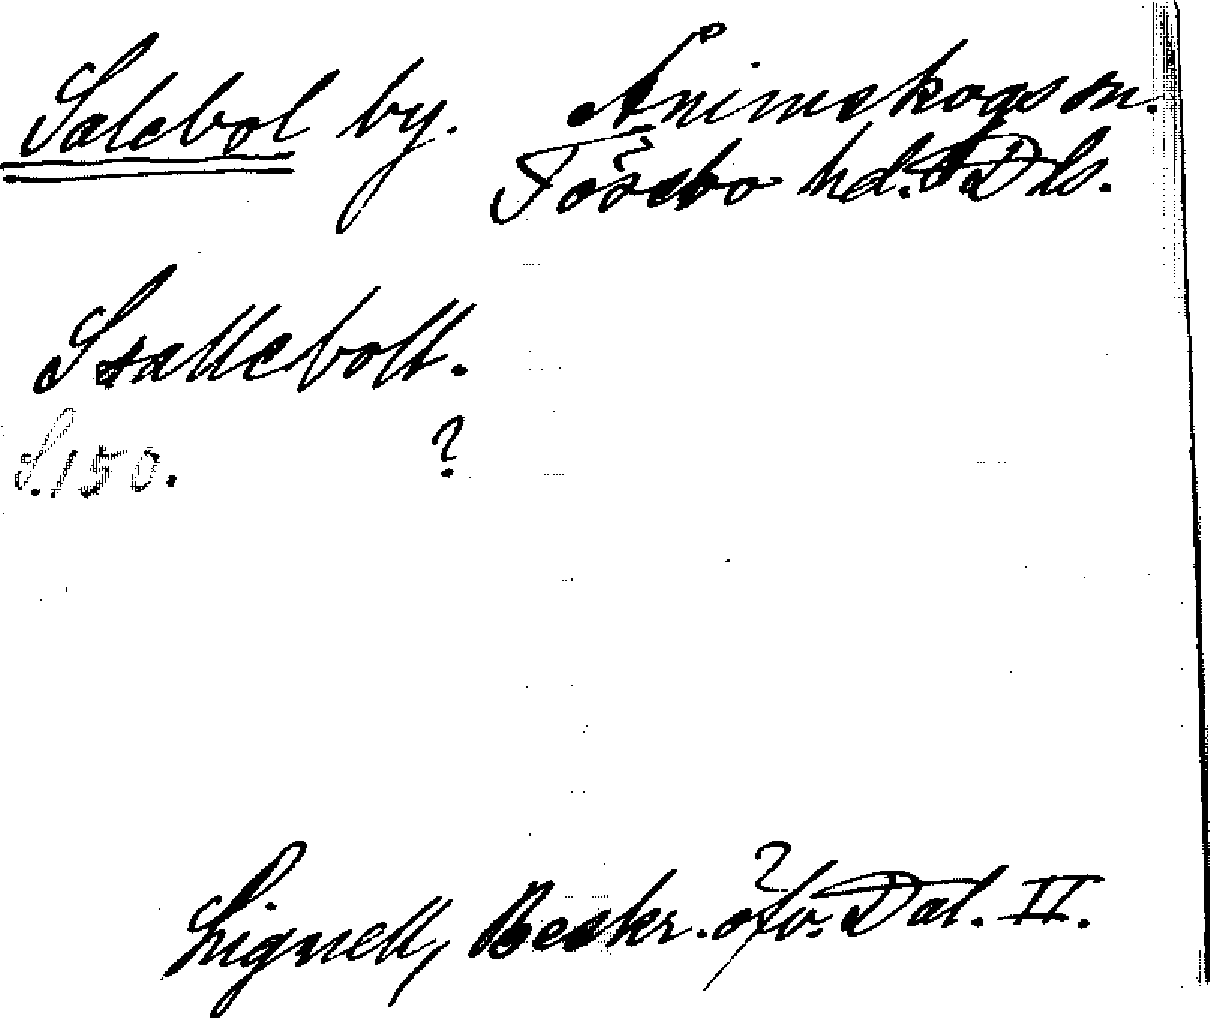 Salebol by. Ånimskogs sn.
Tössbo hd. Dls.
Stalleboll.
S. 150. ?
Lignell, Beskr. öfv. Dal. II.